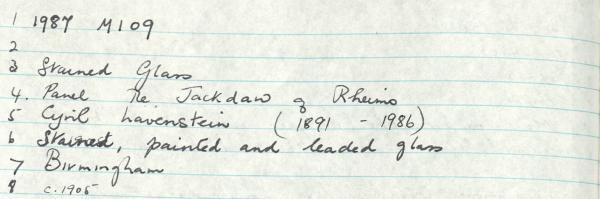 1 1987 M109
2
3 Stained Glass
4. Panel The Jackdaw of Rheims
5 Cyril Lavenstein (1891 - 1986)
6 Stained, painted and leaded glass
7 Birmingham
8 c.1905